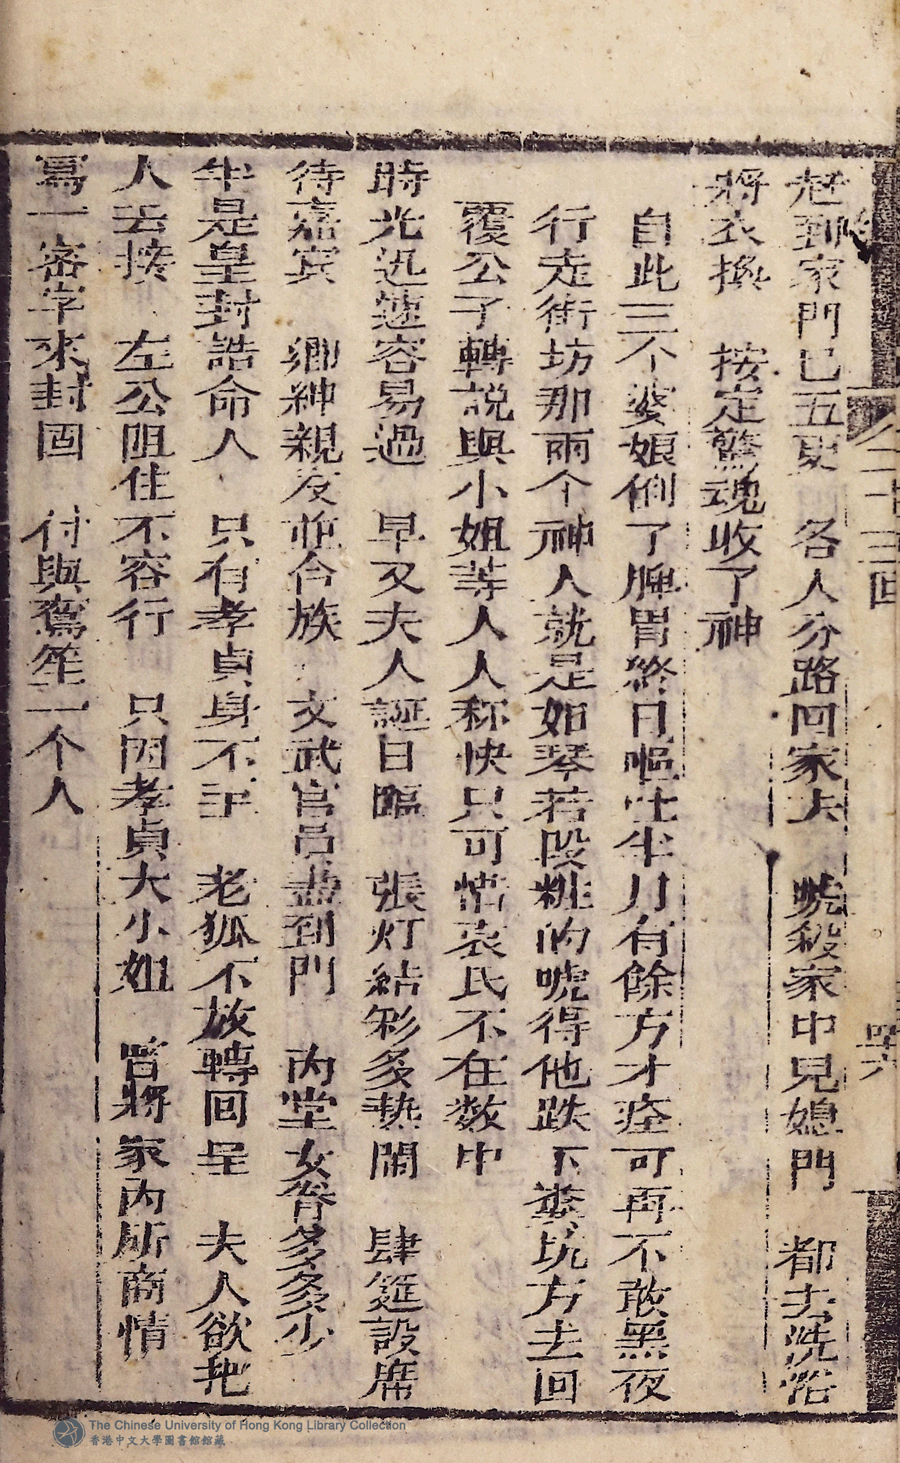 赶到家門已五更　各人分路回家去　唬殺家中兒媳門　都去洗浴
將衣換　按定驚魂收了神
自此三不婆娘倒了脾胃終日嘔吐半月有餘方才痊可再不敢黑夜
行走街坊那兩个神人就是如琴若段粧的唬得他跌下糞坑方去回
覆公子轉說與小姐等人人称快只可惜袁氏不在数中
時光迅速容易過　早又夫人誕日臨　張灯結彩多熱鬧　肆筵設席
待嘉宾　鄉紳親友並合族　文武官員盡到門　內堂女眷多多少
半是皇封誥命人　只有孝貞身不至　老狐不放轉回呈　夫人欲把
人去接　左公阻住不容行　只因孝貞大小姐　曾將家內所商情
寫一密字來封固　付與鸞笙一个人
二十三回
四六
The Chinese University of Hong Kong Library Collection
香港中文大學圖書館館藏